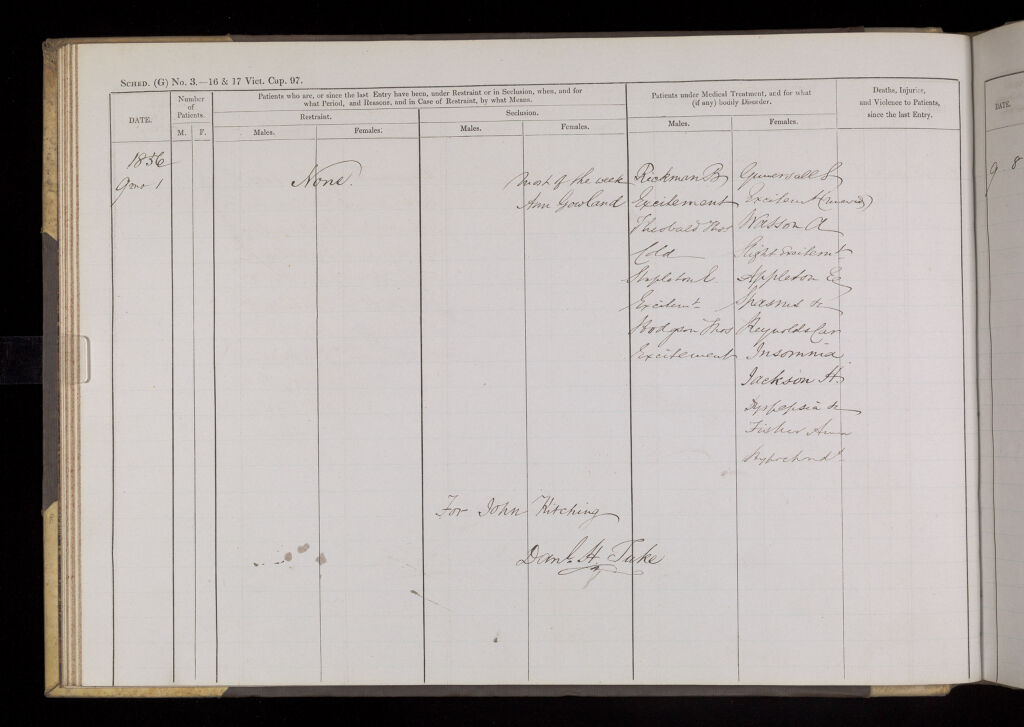 SCHED. (G) No. 3.—16 & 17 Vict. Cap. 97.
DATE.
Number of Patients.
M. F.
Patients who are, or since the last Entry have been, under Restraint or in Seclusion, when, and for
what Period, and Reasons, and in Case of Restraint, by what Means.
Restraint.
Males. Females.
Seclusion.
Males. Females.
Patients under Medical Treatment, and for what
(if any) bodily Disorder.
Males. Females.
Deaths, Injuries,
and Violence to Patients,
since the last Entry.
1856
9 mo 1
None.
Most of the week
Ann Gowland
Rickman B
Excitement
Theobald Thos
Cold
Stapleton E.
Excitemt
Hodgson Thos
Excitement
Excitemt
Wasson A
Slight Excitemt
Appleton
Spasms &c
Reynolds Car
Insomnia
Jackson H.
Dyspepsia &c
Fisher Anna
Hypochnd
For John Kitching
Danl. H. Tuke
DATE.
9 8